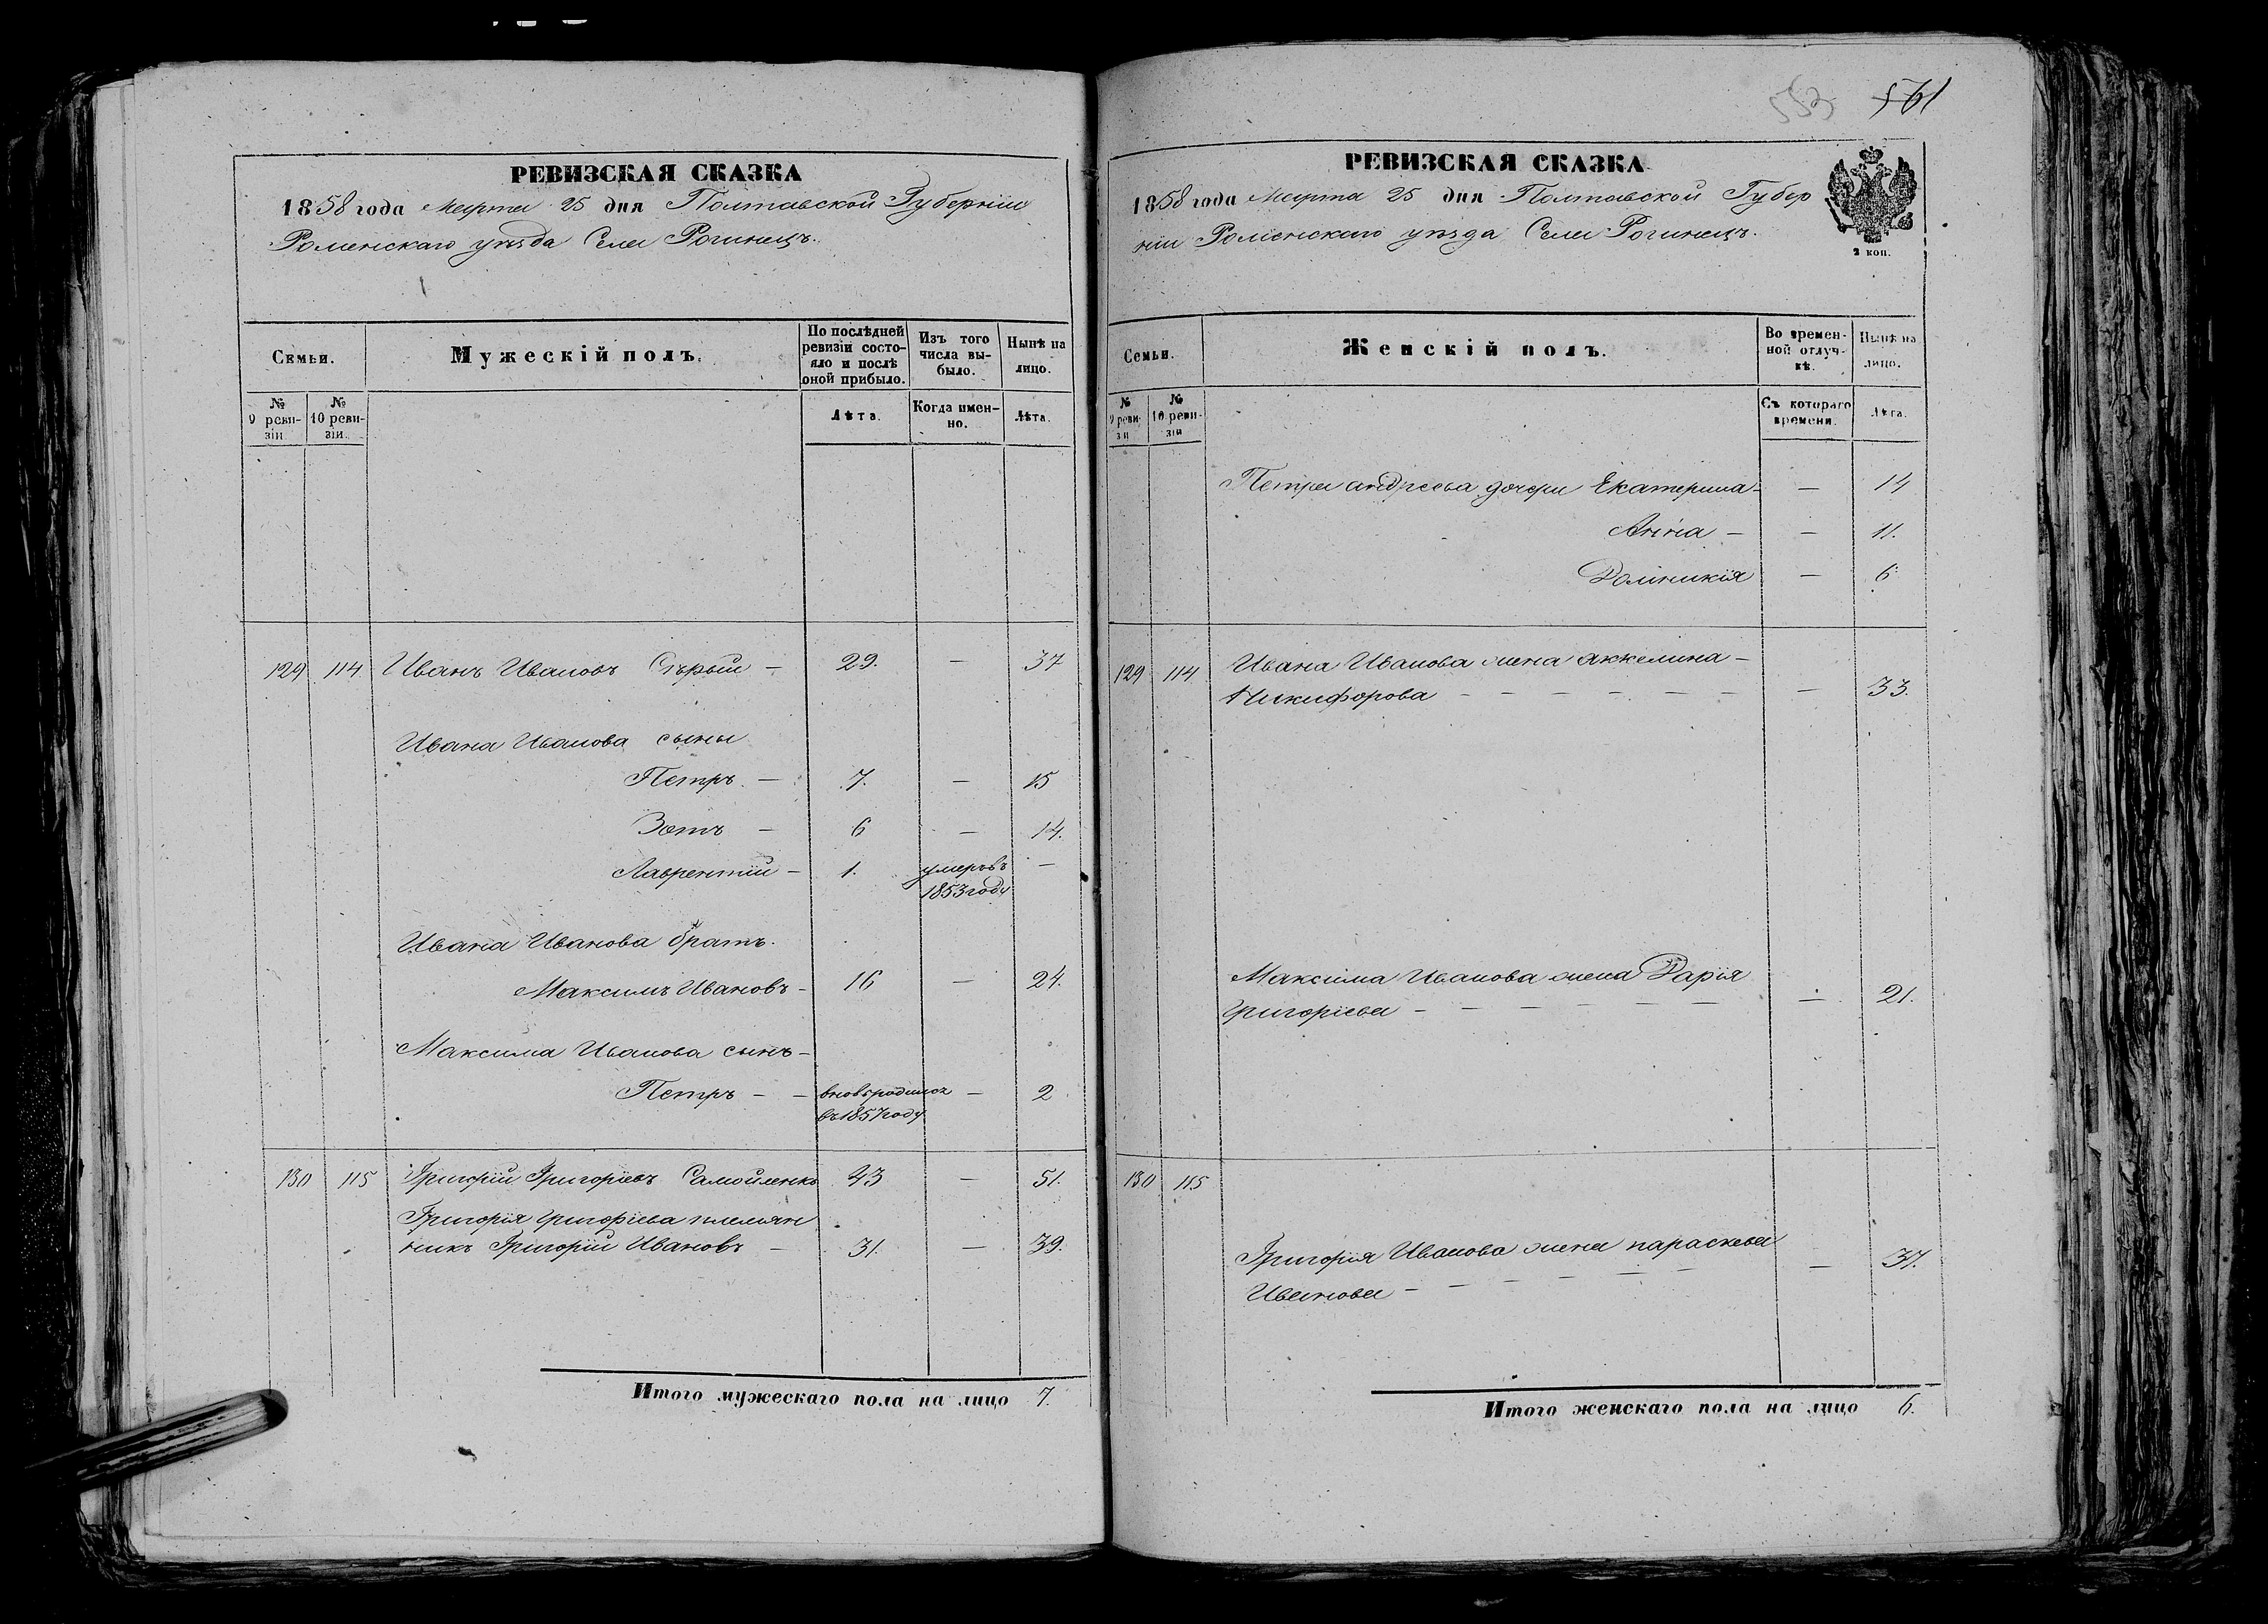 РЕВИЗСКАЯ СКАЗКА
1858 года Марта 25 дня Полтавской Губерніи
Роменскаго уѣзда Села Рогинецъ.
Семьи.
Мужескій полъ.
По послѣдней ревизіи состояло и послѣ оной прибыло.
Изъ того числа выбыло.
Нынѣ на лицо.
№ 9 ревизіи
№ 10 ревизіи.
Лѣта.
Когда именно.
Лѣта.
129 114 Иванъ Ивановъ Сѣрый — 29. — 37
Ивана Иванова сыны
Петръ. — 7. — 15
Зотъ — 6 — 14.
Лаврентій — 1. умеръ въ —
1853 году
Ивана Иванова братъ.
Максимъ Ивановъ — 16 — 24.
Максима Иванова сынъ —
Петръ — — вновь родился — 2
въ 1857 году
130 115 Григорій Григорьевъ Самойленко 43 — 51.
Григорія Григорьева племян
никъ Григорій Ивановъ — 31. — 39.
Итого мужескаго пола на лицо 7.
553 561
РЕВИЗСКАЯ СКАЗКА
1858 года Марта 25 дня Полтавской Губер
ніи Роменскаго уѣзда Села Рогинецъ.
2 коп.
Семьи.
Женскій полъ.
Во временной отлучкѣ.
Нынѣ на лицо.
№ 9 ревизіи
№ 10 ревизіи
Съ котораго времени.
Лѣта.
Петра андреева дочери Екатерина — — 14
Анна — — 11.
Домникія — 6
129 114 Ивана Иванова жена аккелина —
Никифорова — — — — — — — 33.
Максима Иванова жена Дарія
Григоріева — — — — — — 21.
130 115
Григорія Иванова жена параскева — 37.
Иванова — — — — — —
Итого женскаго пола на лицо 6.